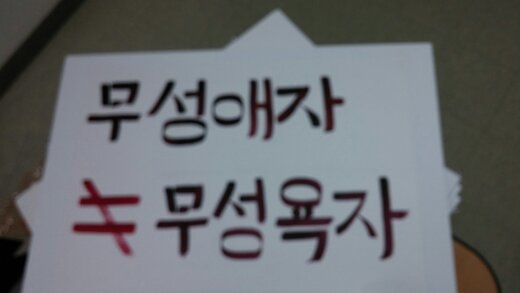 무성애자
≠ 무성욕자